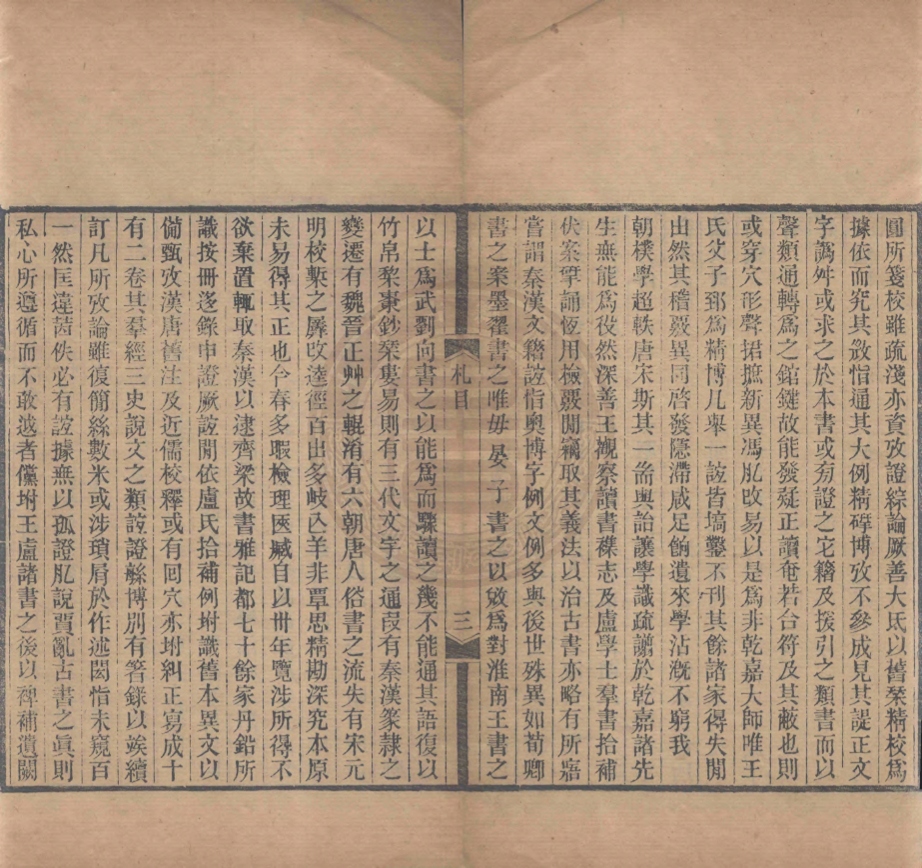 圓所箋校雖疏淺亦資攷證綜論厥善大氐以舊槧精校爲
據依而究其敚恉通其大例精𥓓博攷不參成見其諟正文
字譌舛或求之於本書或旁證之它籍及援引之類書而以
聲類通轉爲之錧鍵故能發疑正讀奄若合符及其蔽也則
或穿穴形聲捃摭新異馮肊改易以是爲非乾嘉大師唯王
氏父子郅爲精博凡舉一誼皆塙鑿不刊其餘諸家得失閒
出然其稽覈異同啓發隱滯咸足餉遺來學沾溉不窮我
朝樸學超軼唐宋斯其一耑與詒讓學識疏譾於乾嘉諸先
生無能爲役然深善王觀察讀書襍志及盧學士羣書拾補
伏案揅誦恆用檢覈閒竊取其義法以治古書亦略有所寤
嘗謂秦漢文籍誼恉奧博字例文例多與後世殊異如荀卿
書之案墨翟書之唯毋晏子書之以敚爲對淮南王書之
札目
三
以士爲武劉向書之以能爲而驟讀之幾不能通其語復以
竹帛棃棗鈔槧婁易則有三代文字之通叚有秦漢篆隸之
變遷有魏晉正艸之輥淆有六朝唐人俗書之流失有宋元
明校槧之羼改逵徑百出多岐亾羊非覃思精勘深究本原
未易得其正也今春多暇檢理匧臧自以卅年覽涉所得不
欲棄置輒取秦漢以逮齊梁故書雅記都七十餘家丹鉛所
識按冊迻錄申證厥誼閒依盧氏拾補例坿識舊本異文以
備甄攷漢唐舊注及近儒校釋或有回穴亦坿糾正寫成十
有二卷其羣經三史說文之類誼證緐博別有箸錄以竢續
訂凡所攷論雖復簡絲數米或涉瑣屑於作述閎恉未窺百
一然匡違茜佚必有誼據無以孤證肊說賈亂古書之眞則
私心所遵循而不敢越者儻坿王盧諸書之後以裨補遺闕